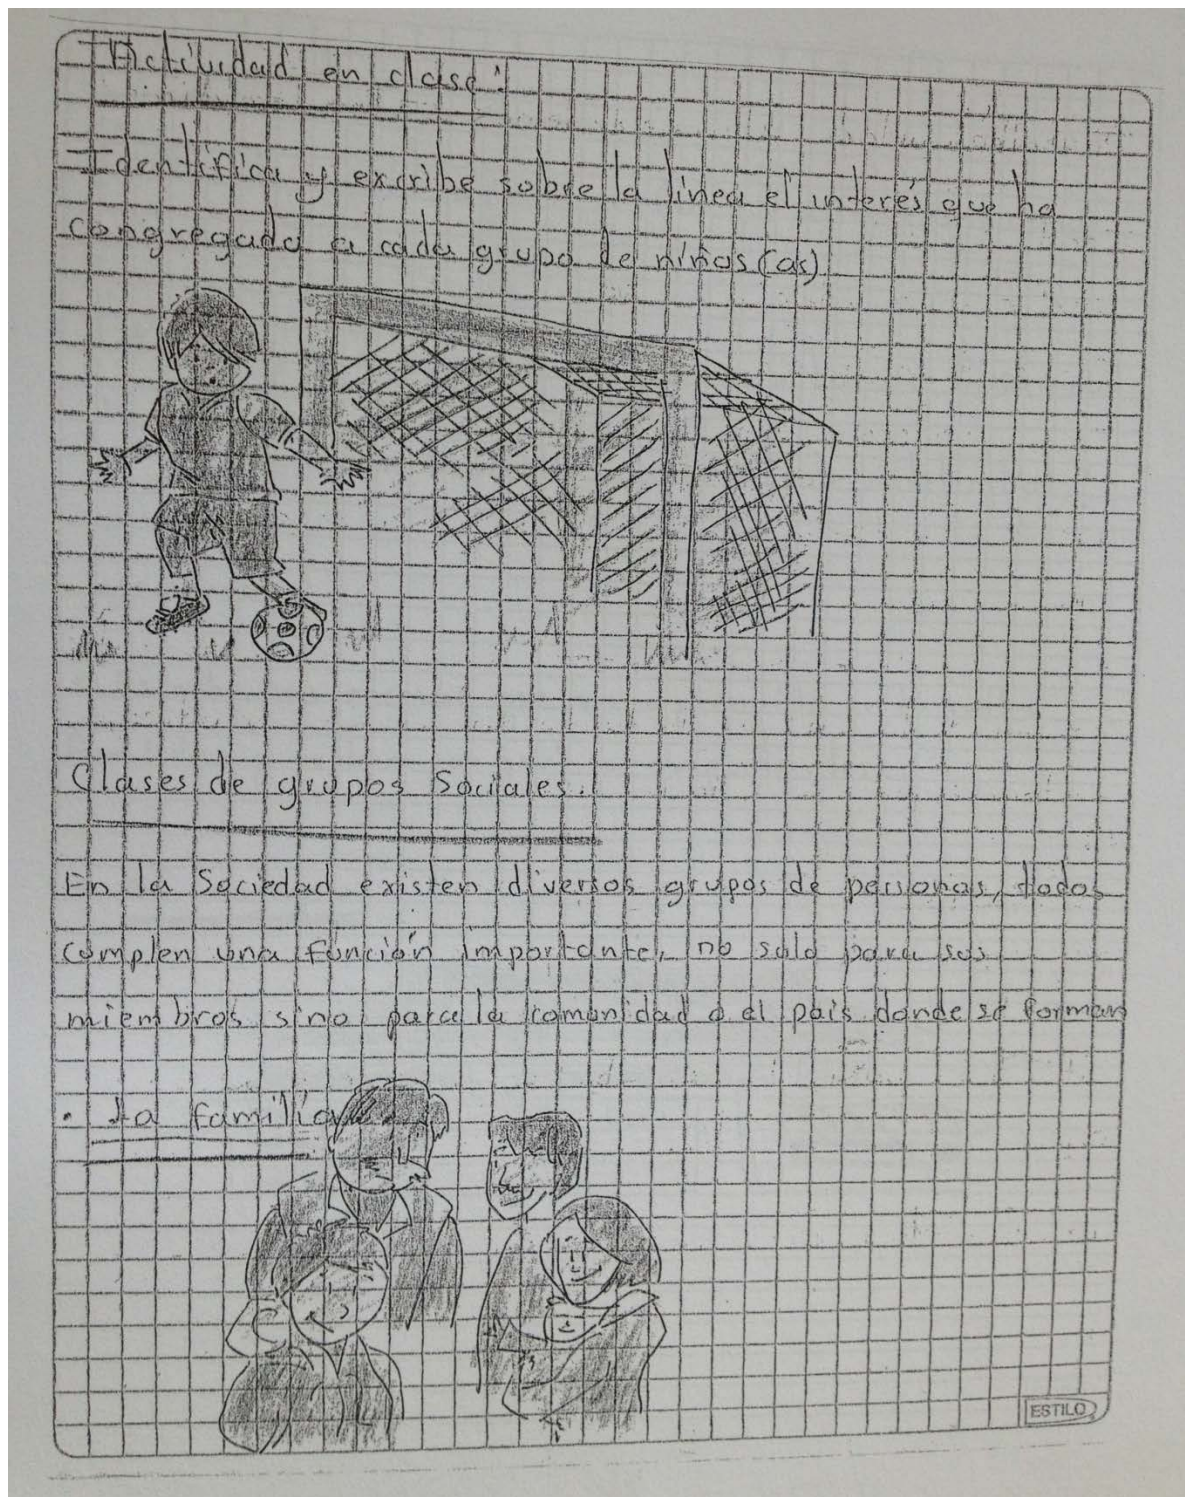 Actividad en clase:
Identifica y excribe sobre la línea el interés que ha
congregado a cada grupo de niños(as)
Clases de grupos Sociales.
En la Sociedad existen diversos grupos de personas, todos
complen una función importante, no solo para sus
miembros sino para la comunidad o el país donde se forman
• La familia
ESTILO